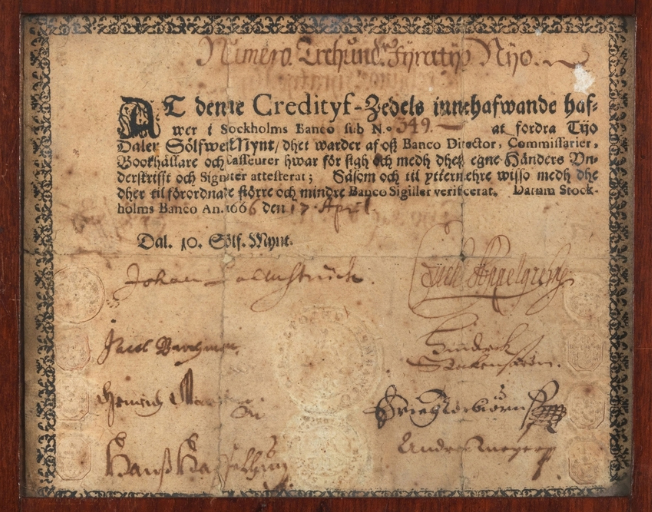 Numero Trehund. Fyratijo Nijo.
AT denne Credityf-Zedels innehafwande haf-
wer i Stockholms Banco sub N.o 349 at fordra Tijo
Daler Sölfwer Mynt / dhet warder af oß Banco Director, Commissarier,
Bookhållare och Casseurer hwar för sigh och medh dheß egne Händers Vn-
derskrifft och Signeter attesterat; Såsom och til ytterme​hre wisso medh dhe
dher til förordnade större och mindre Banco Sigiller verificerat. Datum Stock-
holms Banco An. 1666 den 17 April
Dal. 10. Sölf. Mynt.
Johan Palmstruck.
Appelgren
Jacob
Hindrick
Heinrich
Hanß
Anders Meyer